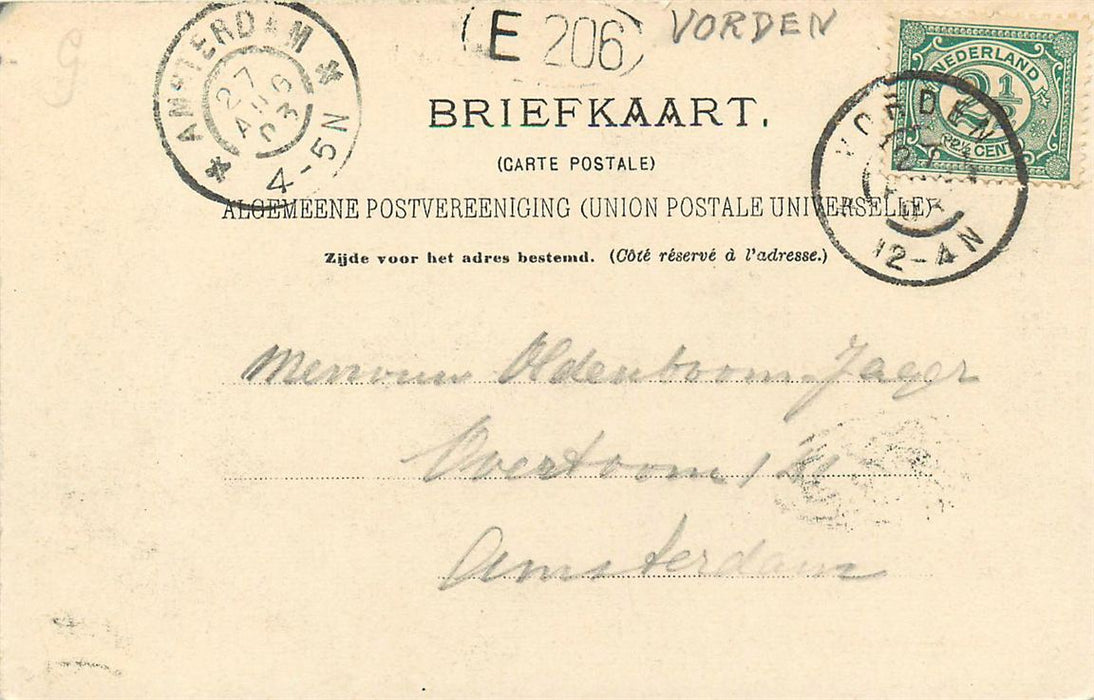 G
AMSTERDAM
27
AUG
03
4-5N
E 206
VORDEN
NEDERLAND
2½
CENT
VORDEN
12-4N
BRIEFKAART.
(CARTE POSTALE)
ALGEMEENE POSTVEREENIGING (UNION POSTALE UNIVERSELLE)
Zijde voor het adres bestemd. (Côté réservé à l'adresse.)
Mevrouw Oldenboom-Jager
Overtoom
Amsterdam